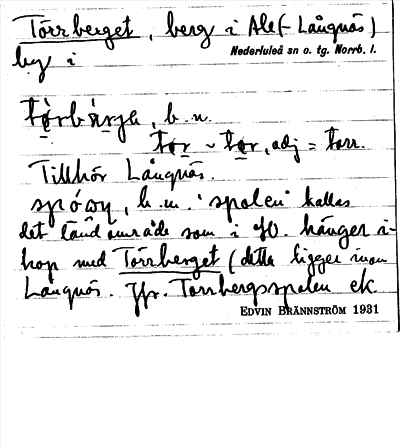 Törrberget, berg i Ale (- Långnäs)
by i Nederluleå sn o. tg. Norrb. l.
tòrbærgə, b. n.
tør ~ tør, adj = torr.
Tillhör Långnäs.
b. m. "spolen" kallas
det landområde som i SO. hänger i-
hop med Törrberget (detta ligger inom
Långnäs. Jfr. Torrbergsspolen ek.
EDVIN BRÄNNSTRÖM 1931